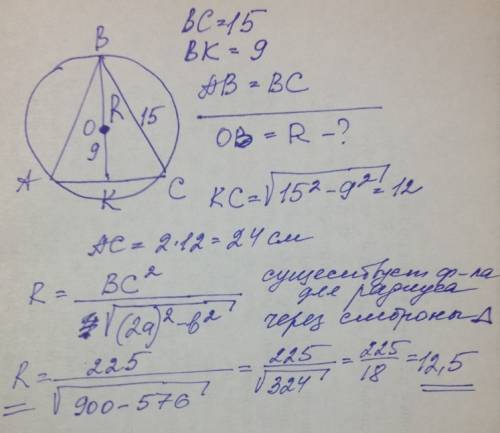 BC = 15
BK = 9
AB = BC
OB = R - ?
B
O
R
15
9
A
K
C
KC = √15² - 9² = 12
AC = 2·12 = 24 см
R = BC² / √(2a)² - b²
существует ф-ла
для радиуса
через стороны Δ
R = 225 / √900 - 576 = 225 / √324 = 225 / 18 = 12,5